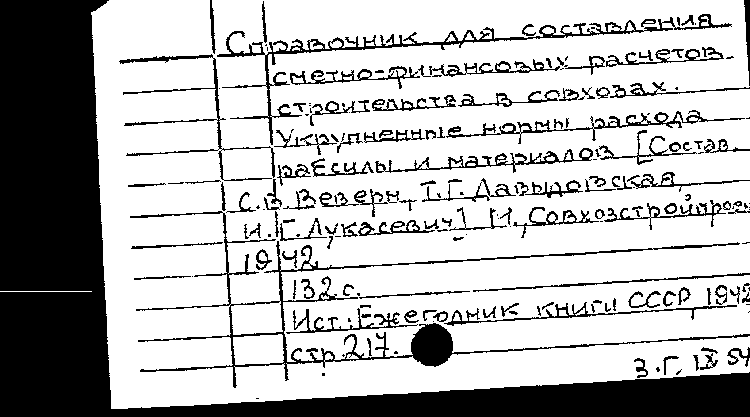 Справочник для составления
сметно-финансовых расчетов
строительства в совхозах.
Укрупненные нормы расхода
рабсилы и материалов [Состав.
С.В. Веверн, Т.Г. Давыдовская,
И.Г. Лукасевич] М., Совхозстройпроект
1942.
132 с.
Ист.: Ежегодник книги СССР, 1942
стр. 217.
З.Г. IX 54